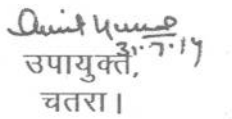 31.7.14
उपायुक्त,
चतरा।